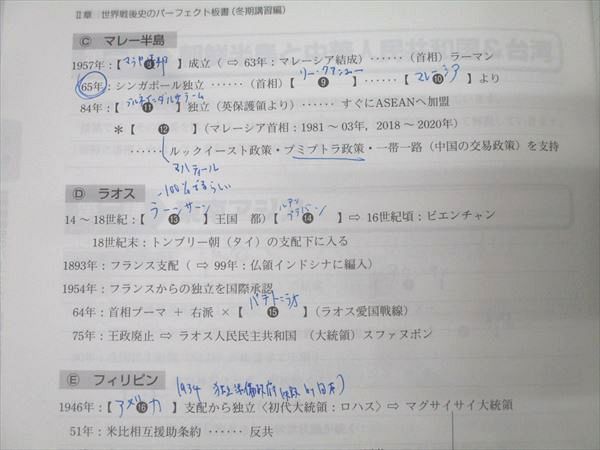 Ⅱ章 世界戦後史のパーフェクト板書（冬期講習編）
Ⓒ マレー半島
1957年：【マラヤ連邦 ❽】成立（⇨ 63年：マレーシア結成）……（首相）ラーマン
65年：シンガポール独立……（首相）【リー・クアンユー ❾】……【マレーシア ❿】より
84年：【ブルネイ=ダルサラーム ⓫】独立（英保護領より）…… すぐにASEANへ加盟
＊【⓬】（マレーシア首相：1981～03年，2018～2020年）
……ルックイースト政策・ブミプトラ政策・一帯一路（中国の交易政策）を支持
マハティール
Ⓓ ラオス
-100%でるらしい
14～18世紀：【ラーンサーン ⓭】王国 都）【ルアンプラバーン ⓮】⇨ 16世紀頃：ビエンチャン
18世紀末：トンブリー朝（タイ）の支配下に入る
1893年：フランス支配（⇨ 99年：仏領インドシナに編入）
1954年：フランスからの独立を国際承認
64年：首相プーマ ＋ 右派 ×【パテト=ラオ ⓯】（ラオス愛国戦線）
75年：王政廃止 ⇨ ラオス人民民主共和国 （大統領）スファヌボン
Ⓔ フィリピン
(1934 独立準備政府 by 日本)
1946年：【アメリカ ⓰】支配から独立〈初代大統領：ロハス〉⇨ マグサイサイ大統領
51年：米比相互援助条約…… 反共